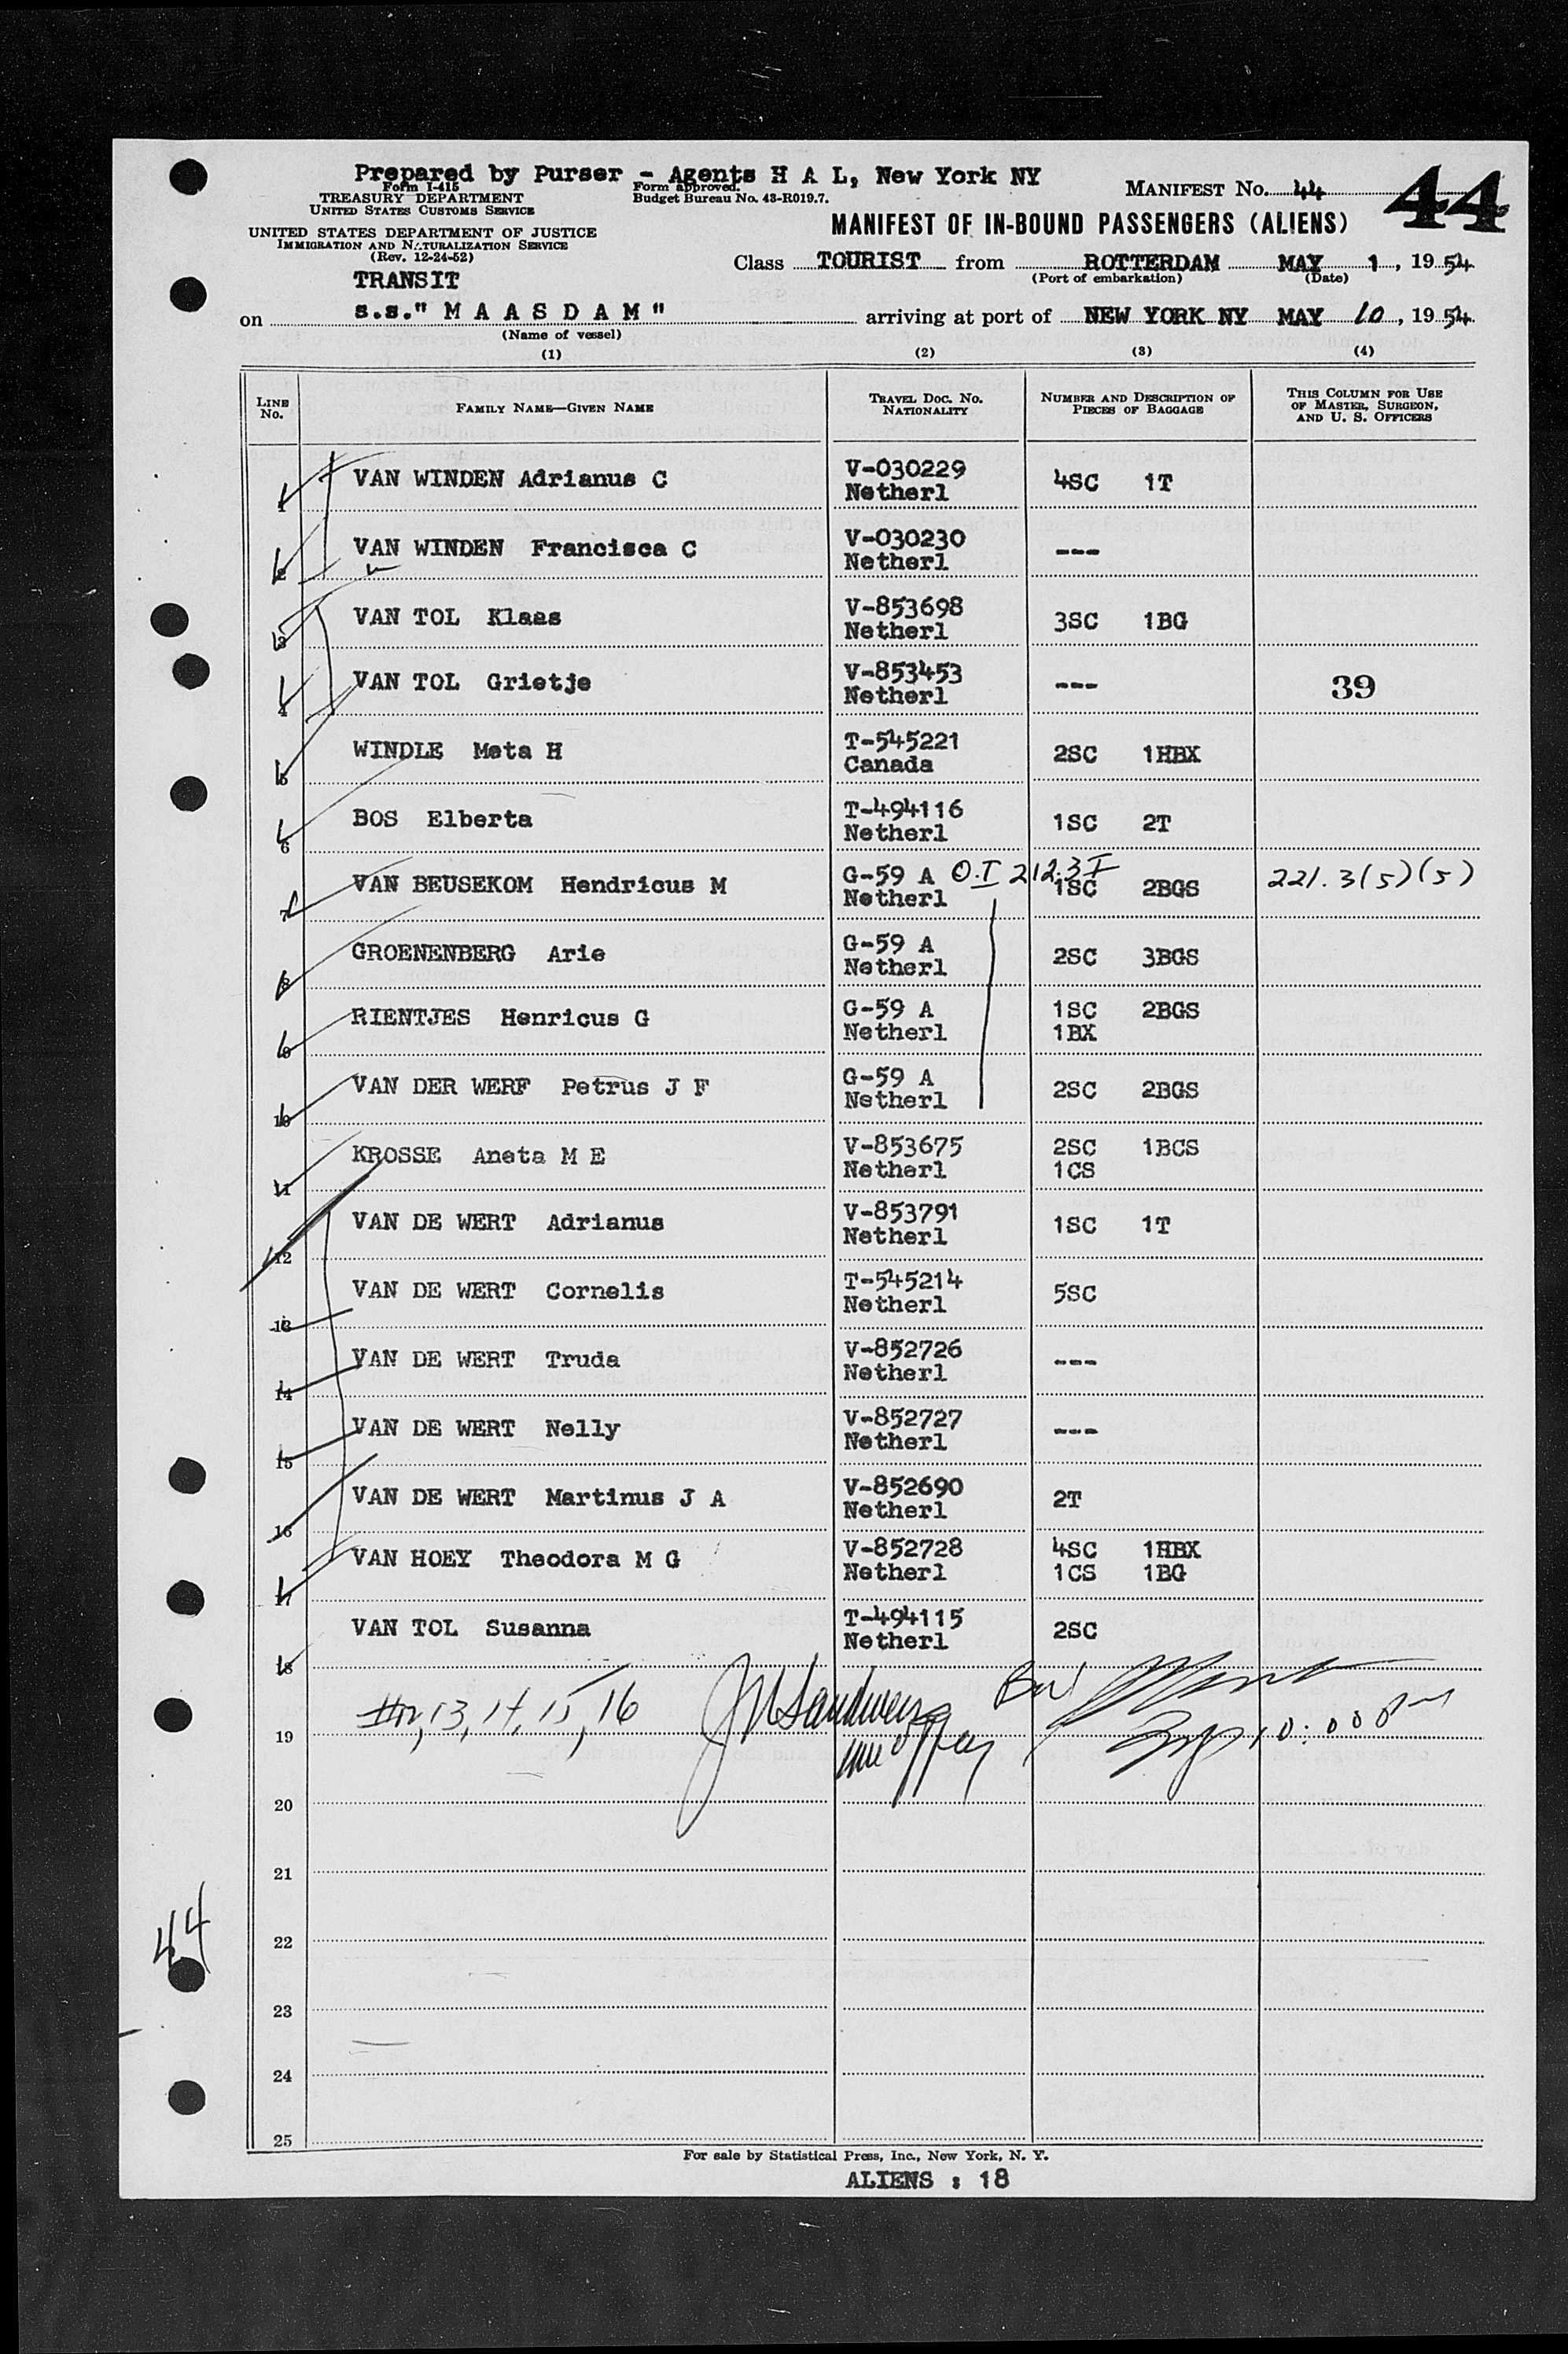 Prepared by Purser - Agents H A L, New York NY
Form I-415
TREASURY DEPARTMENT
UNITED STATES CUSTOMS SERVICE
Form approved.
Budget Bureau No. 43-R019.7.
MANIFEST No. 44
44
UNITED STATES DEPARTMENT OF JUSTICE
IMMIGRATION AND NATURALIZATION SERVICE
(Rev. 12-24-52)
MANIFEST OF IN-BOUND PASSENGERS (ALIENS)
TRANSIT
Class TOURIST from ROTTERDAM MAY 1, 1954
(Port of embarkation) (Date)
on s.s." M A A S D A M " arriving at port of NEW YORK NY MAY 10, 1954
(Name of vessel)
(1) (2) (3) (4)
LINE No. FAMILY NAME—GIVEN NAME TRAVEL DOC. NO. NATIONALITY NUMBER AND DESCRIPTION OF PIECES OF BAGGAGE THIS COLUMN FOR USE OF MASTER, SURGEON, AND U. S. OFFICERS
1 VAN WINDEN Adrianus C V-030229 Netherl 4SC 1T
2 VAN WINDEN Francisca C V-030230 Netherl ---
3 VAN TOL Klaas V-853698 Netherl 3SC 1BG
4 VAN TOL Grietje V-853453 Netherl --- 39
5 WINDLE Meta H T-545221 Canada 2SC 1HBX
6 BOS Elberta T-494116 Netherl 1SC 2T
7 VAN BEUSEKOM Hendricus M G-59 A Netherl O.I 212.3I 1SC 2BGS 221.3(5)(5)
8 GROENENBERG Arie G-59 A Netherl 2SC 3BGS
9 RIENTJES Henricus G G-59 A Netherl 1SC 2BGS 1BX
10 VAN DER WERF Petrus J F G-59 A Netherl 2SC 2BGS
11 KROSSE Aneta M E V-853675 Netherl 2SC 1BCS 1CS
12 VAN DE WERT Adrianus V-853791 Netherl 1SC 1T
13 VAN DE WERT Cornelis T-545214 Netherl 5SC
14 VAN DE WERT Truda V-852726 Netherl ---
15 VAN DE WERT Nelly V-852727 Netherl ---
16 VAN DE WERT Martinus J A V-852690 Netherl 2T
17 VAN HOEY Theodora M G V-852728 Netherl 4SC 1HBX 1CS 1BG
18 VAN TOL Susanna T-494115 Netherl 2SC
19 13, 14, 15, 16
20
21
22
44
23
24
25
For sale by Statistical Press, Inc., New York, N. Y.
ALIENS : 18